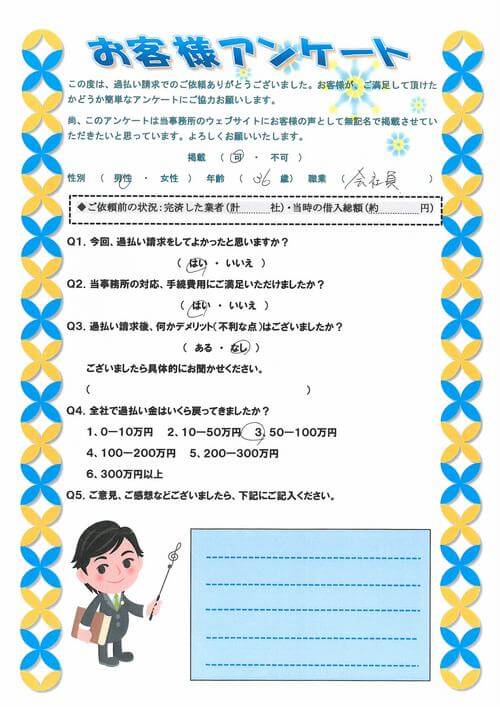 お客様アンケート
この度は、過払い請求でのご依頼ありがとうございました。お客様が、ご満足して頂けた
かどうか簡単なアンケートにご協力お願いします。
尚、このアンケートは当事務所のウェブサイトにお客様の声として無記名で掲載させてい
ただきたいと思っています。よろしくお願いいたします。
掲載 （ 可 ・ 不可 ）
性別 （ 男性 ・ 女性 ） 年齢 （ 36 歳） 職業 （ 会社員 ）
◆ご依頼前の状況：完済した業者（計　　　社）・当時の借入総額（約　　　　円）
Q1．今回、過払い請求をしてよかったと思いますか？
（ はい ・ いいえ ）
Q2．当事務所の対応、手続費用にご満足いただけましたか？
（ はい ・ いいえ ）
Q3．過払い請求後、何かデメリット（不利な点）はございましたか？
（ ある ・ なし ）
ございましたら具体的にお聞かせください。
（　　　　　　　　　　）
Q4．全社で過払い金はいくら戻ってきましたか？
1、0－10万円 2、10－50万円 3、50－100万円
4、100－200万円 5、200－300万円
6、300万円以上
Q5．ご意見、ご感想などございましたら、下記にご記入ください。